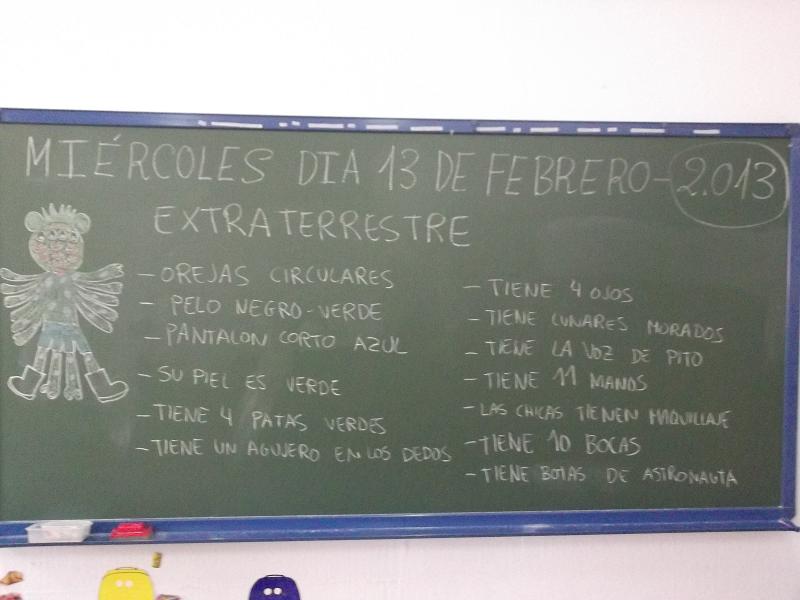 MIÉRCOLES DIA 13 DE FEBRERO-2.013
EXTRATERRESTRE
- OREJAS CIRCULARES
- PELO NEGRO-VERDE
- PANTALON CORTO AZUL
- SU PIEL ES VERDE
- TIENE 4 PATAS VERDES
- TIENE UN AGUJERO EN LOS DEDOS
- TIENE 4 OJOS
- TIENE LUNARES MORADOS
- TIENE LA VOZ DE PITO
- TIENE 11 MANOS
- LAS CHICAS TIENEN MAQUILLAJE
- TIENE 10 BOCAS
- TIENE BOTAS DE ASTRONAUTA